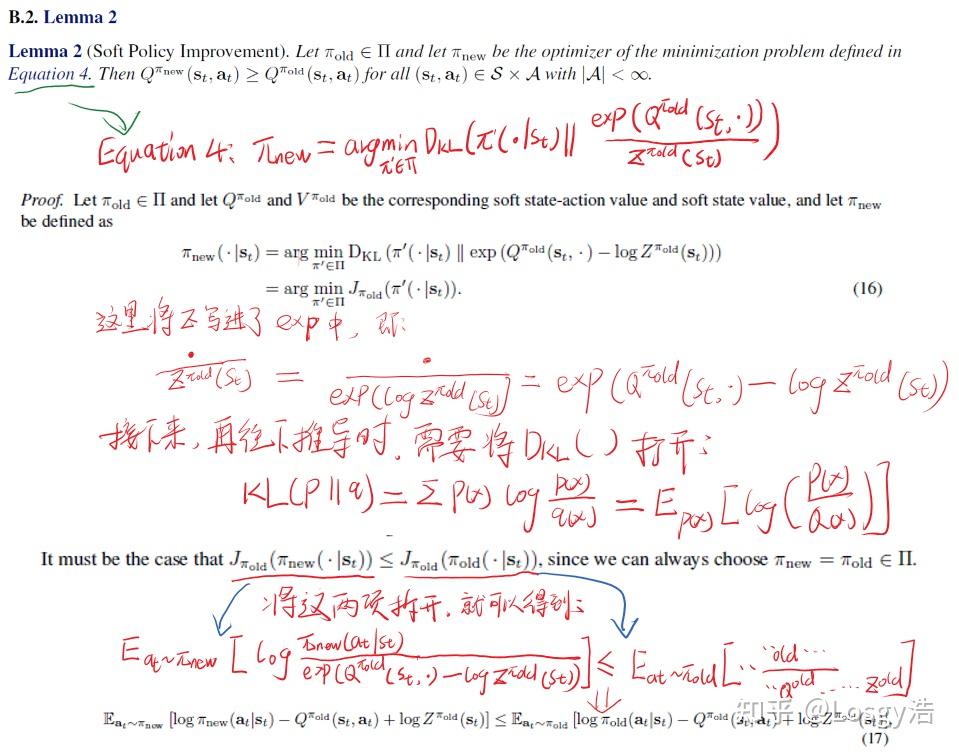 B.2. Lemma 2
Lemma 2 (Soft Policy Improvement). Let π_old ∈ Π and let π_new be the optimizer of the minimization problem defined in
Equation 4. Then Q^{π_new}(s_t, a_t) ≥ Q^{π_old}(s_t, a_t) for all (s_t, a_t) ∈ S × A with |A| < ∞.
Equation 4: π_new = argmin_{π'∈Π} D_KL(π'(·|s_t) || exp(Q^{π_old}(s_t, ·)) / Z^{π_old}(s_t))
Proof. Let π_old ∈ Π and let Q^{π_old} and V^{π_old} be the corresponding soft state-action value and soft state value, and let π_new
be defined as
π_new(·|s_t) = arg min_{π'∈Π} D_KL (π'(·|s_t) ∥ exp (Q^{π_old}(s_t, ·) − log Z^{π_old}(s_t)))
= arg min_{π'∈Π} J_{π_old}(π'(·|s_t)). (16)
这里将Z写进了exp中，即:
· / Z^{π_old}(S_t) = · / exp(log Z^{π_old}(S_t)) = exp(Q^{π_old}(s_t, ·) − log Z^{π_old}(s_t))
接下来，再往下推导时，需要将D_KL( )打开:
KL(P||q) = Σ P(x) log p(x)/q(x) = E_{p(x)} [log(P(x)/Q(x))]
It must be the case that J_{π_old}(π_new(·|s_t)) ≤ J_{π_old}(π_old(·|s_t)), since we can always choose π_new = π_old ∈ Π.
将这两项拆开，就可以得到:
E_{at~π_new} [log π_new(at|st) / exp(Q^{π_old}(s_t, ·) − log Z^{π_old}(s_t))] ≤ E_{at~π_old} [.. old... / ..Q^{old}... Z^{old}]
E_{a_t∼π_new} [log π_new(a_t|s_t) − Q^{π_old}(s_t, a_t) + log Z^{π_old}(s_t)] ≤ E_{a_t∼π_old} [log π_old(a_t|s_t) − Q^{π_old}(s_t, a_t) + log Z^{π_old}(s_t)],
(17)
知乎 @Losgy浩